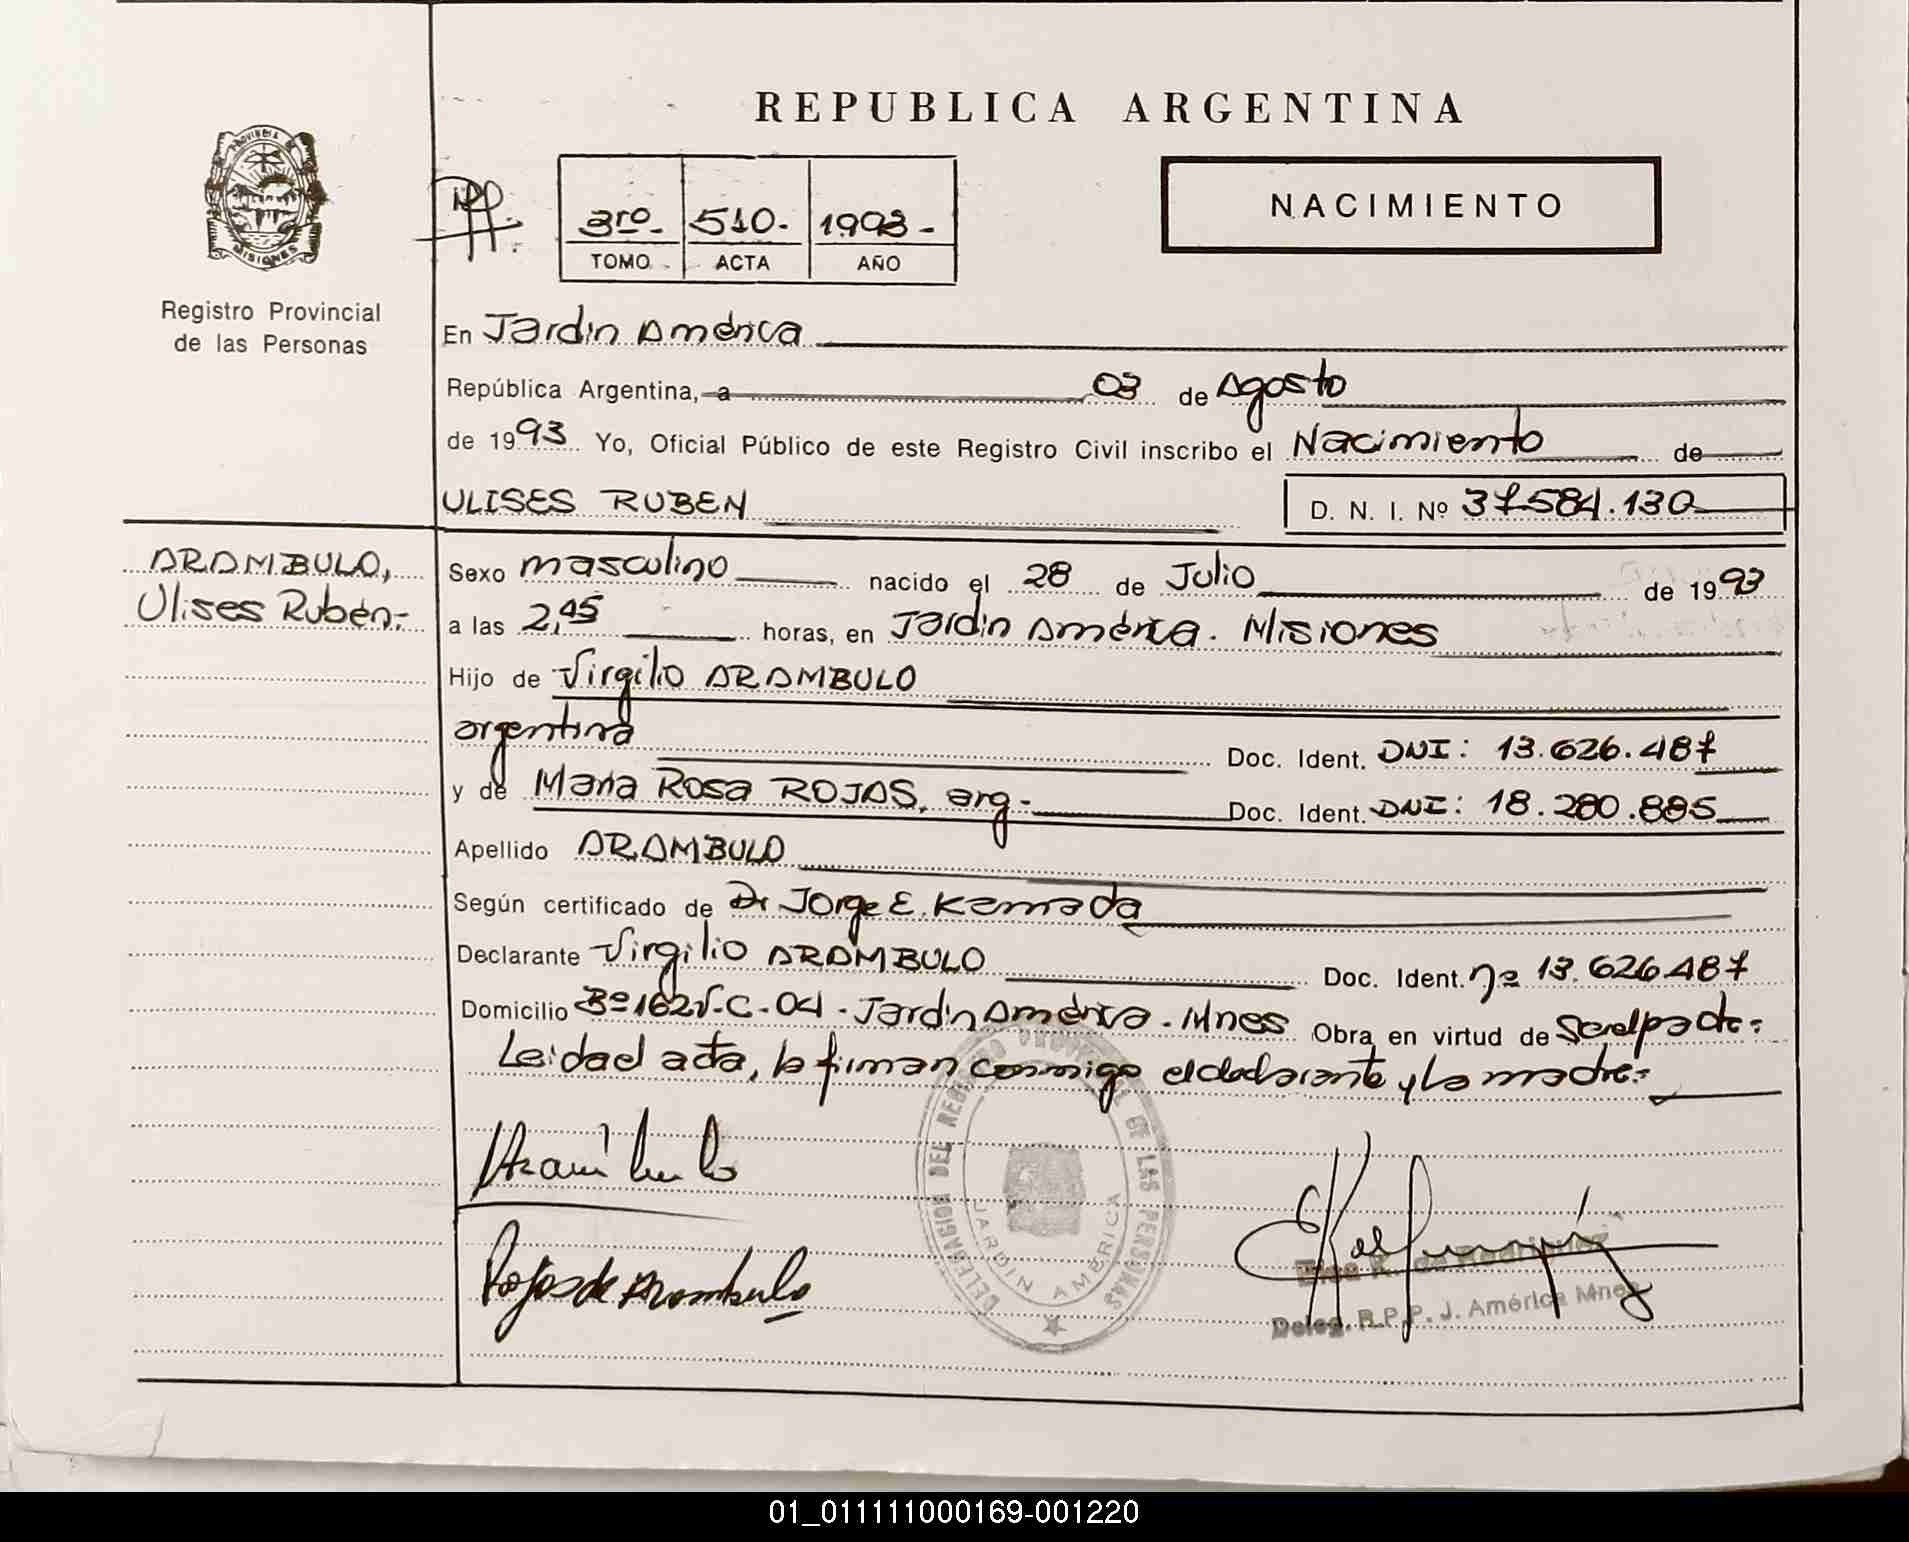 REPUBLICA ARGENTINA
PROVINCIA
MISIONES
Registro Provincial
de las Personas
3ro. 510. 1993.
TOMO ACTA AÑO
NACIMIENTO
En Jardin América
República Argentina, a 03 de Agosto
de 1993 Yo, Oficial Público de este Registro Civil inscribo el Nacimiento de
ULISES RUBEN D. N. I. Nº 37.584.130
ARAMBULO,
Ulises Rubén.-
Sexo masculino nacido el 28 de Julio de 1993
a las 2,45 horas, en Jardin América. Misiones
Hijo de Virgilio ARAMBULO
argentina Doc. Ident. DNI: 13.626.487
y de Maria Rosa ROJAS, arg.- Doc. Ident. DNI: 18.280.885
Apellido ARAMBULO
Según certificado de Dr Jorge E.
Declarante Virgilio ARAMBULO Doc. Ident. nº 13.626.487
Domicilio Bº 162 V.C-04.-Jardin América.-Mnes Obra en virtud de Ser el padre.
Leida el acta, la firman conmigo el declarante y la madre.-
Arambulo
Rojas de Arambulo
DELEGACION DEL REGISTRO PROVINCIAL DE LAS PERSONAS
JARDIN AMERICA
Elsa K. de Rodriguez
Deleg. R.P.P. J. América Mnes
01_011111000169-001220